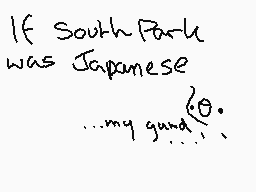 If South Park
was Japanese
...my gund